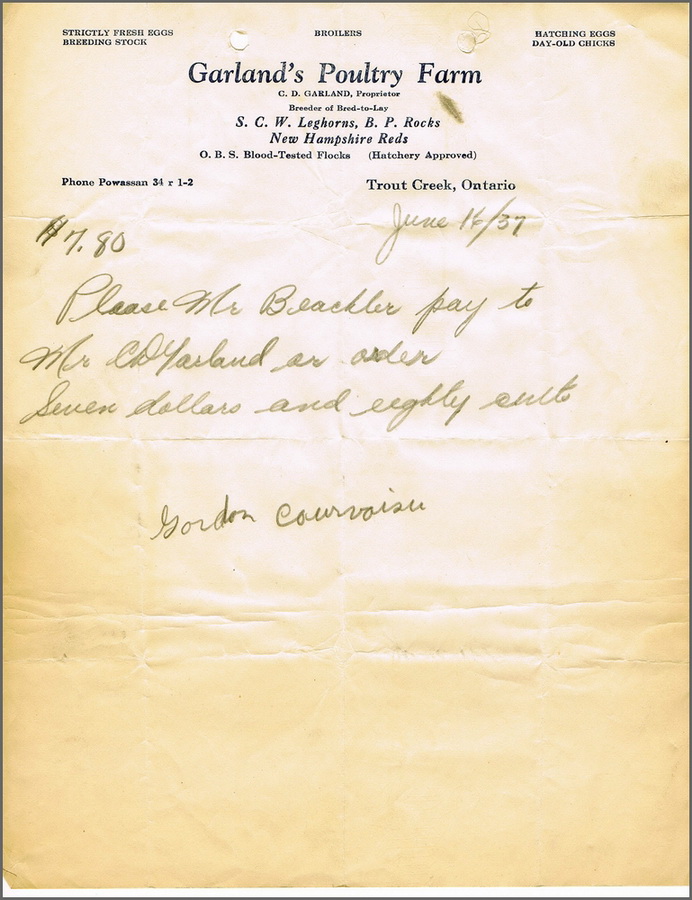 STRICTLY FRESH EGGS BROILERS HATCHING EGGS
BREEDING STOCK DAY-OLD CHICKS
Garland's Poultry Farm
C. D. GARLAND, Proprietor
Breeder of Bred-to-Lay
S. C. W. Leghorns, B. P. Rocks
New Hampshire Reds
O. B. S. Blood-Tested Flocks (Hatchery Approved)
Phone Powassan 34 r 1-2 Trout Creek, Ontario
June 16/37
$7.80
Please Mr Beachler pay to
Mr CD Garland or order
Seven dollars and eighty cents
Gordon Courvoisier